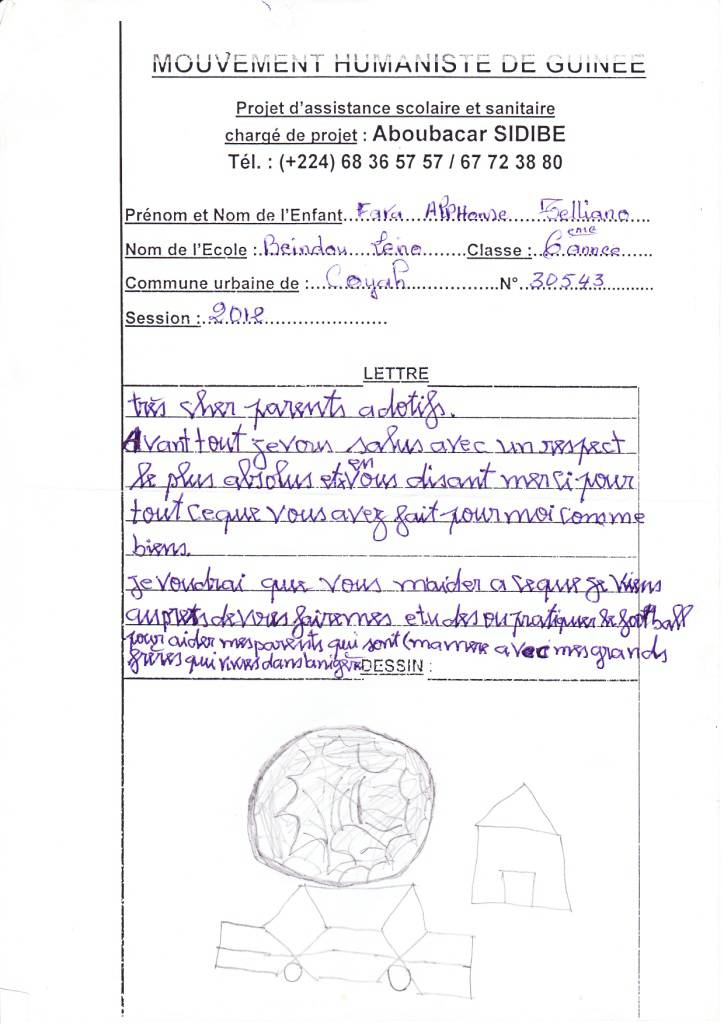 MOUVEMENT HUMANISTE DE GUINEE
Projet d'assistance scolaire et sanitaire
chargé de projet : Aboubacar SIDIBE
Tél. : (+224) 68 36 57 57 / 67 72 38 80
Prénom et Nom de l'Enfant...Fara Alphonse Telliano
Nom de l'Ecole :.Beindou Leno........Classe :.6ème année......
Commune urbaine de :...Coyah..................N°..30543..........
Session :.2012.....................
LETTRE
très cher parents adotifs.
Avant tout je vous salus avec un respect
le plus absolus et en vous disant merci pour
tout ceque vous avez fait pour moi comme
biens.
je voudrai que vous maider a ceque je viens
auprets de vous faire mes etudes ou pratiquer le football
pour aider mes parents qui sont (mamere avec mes grands
frères qui vives dans
DESSIN :